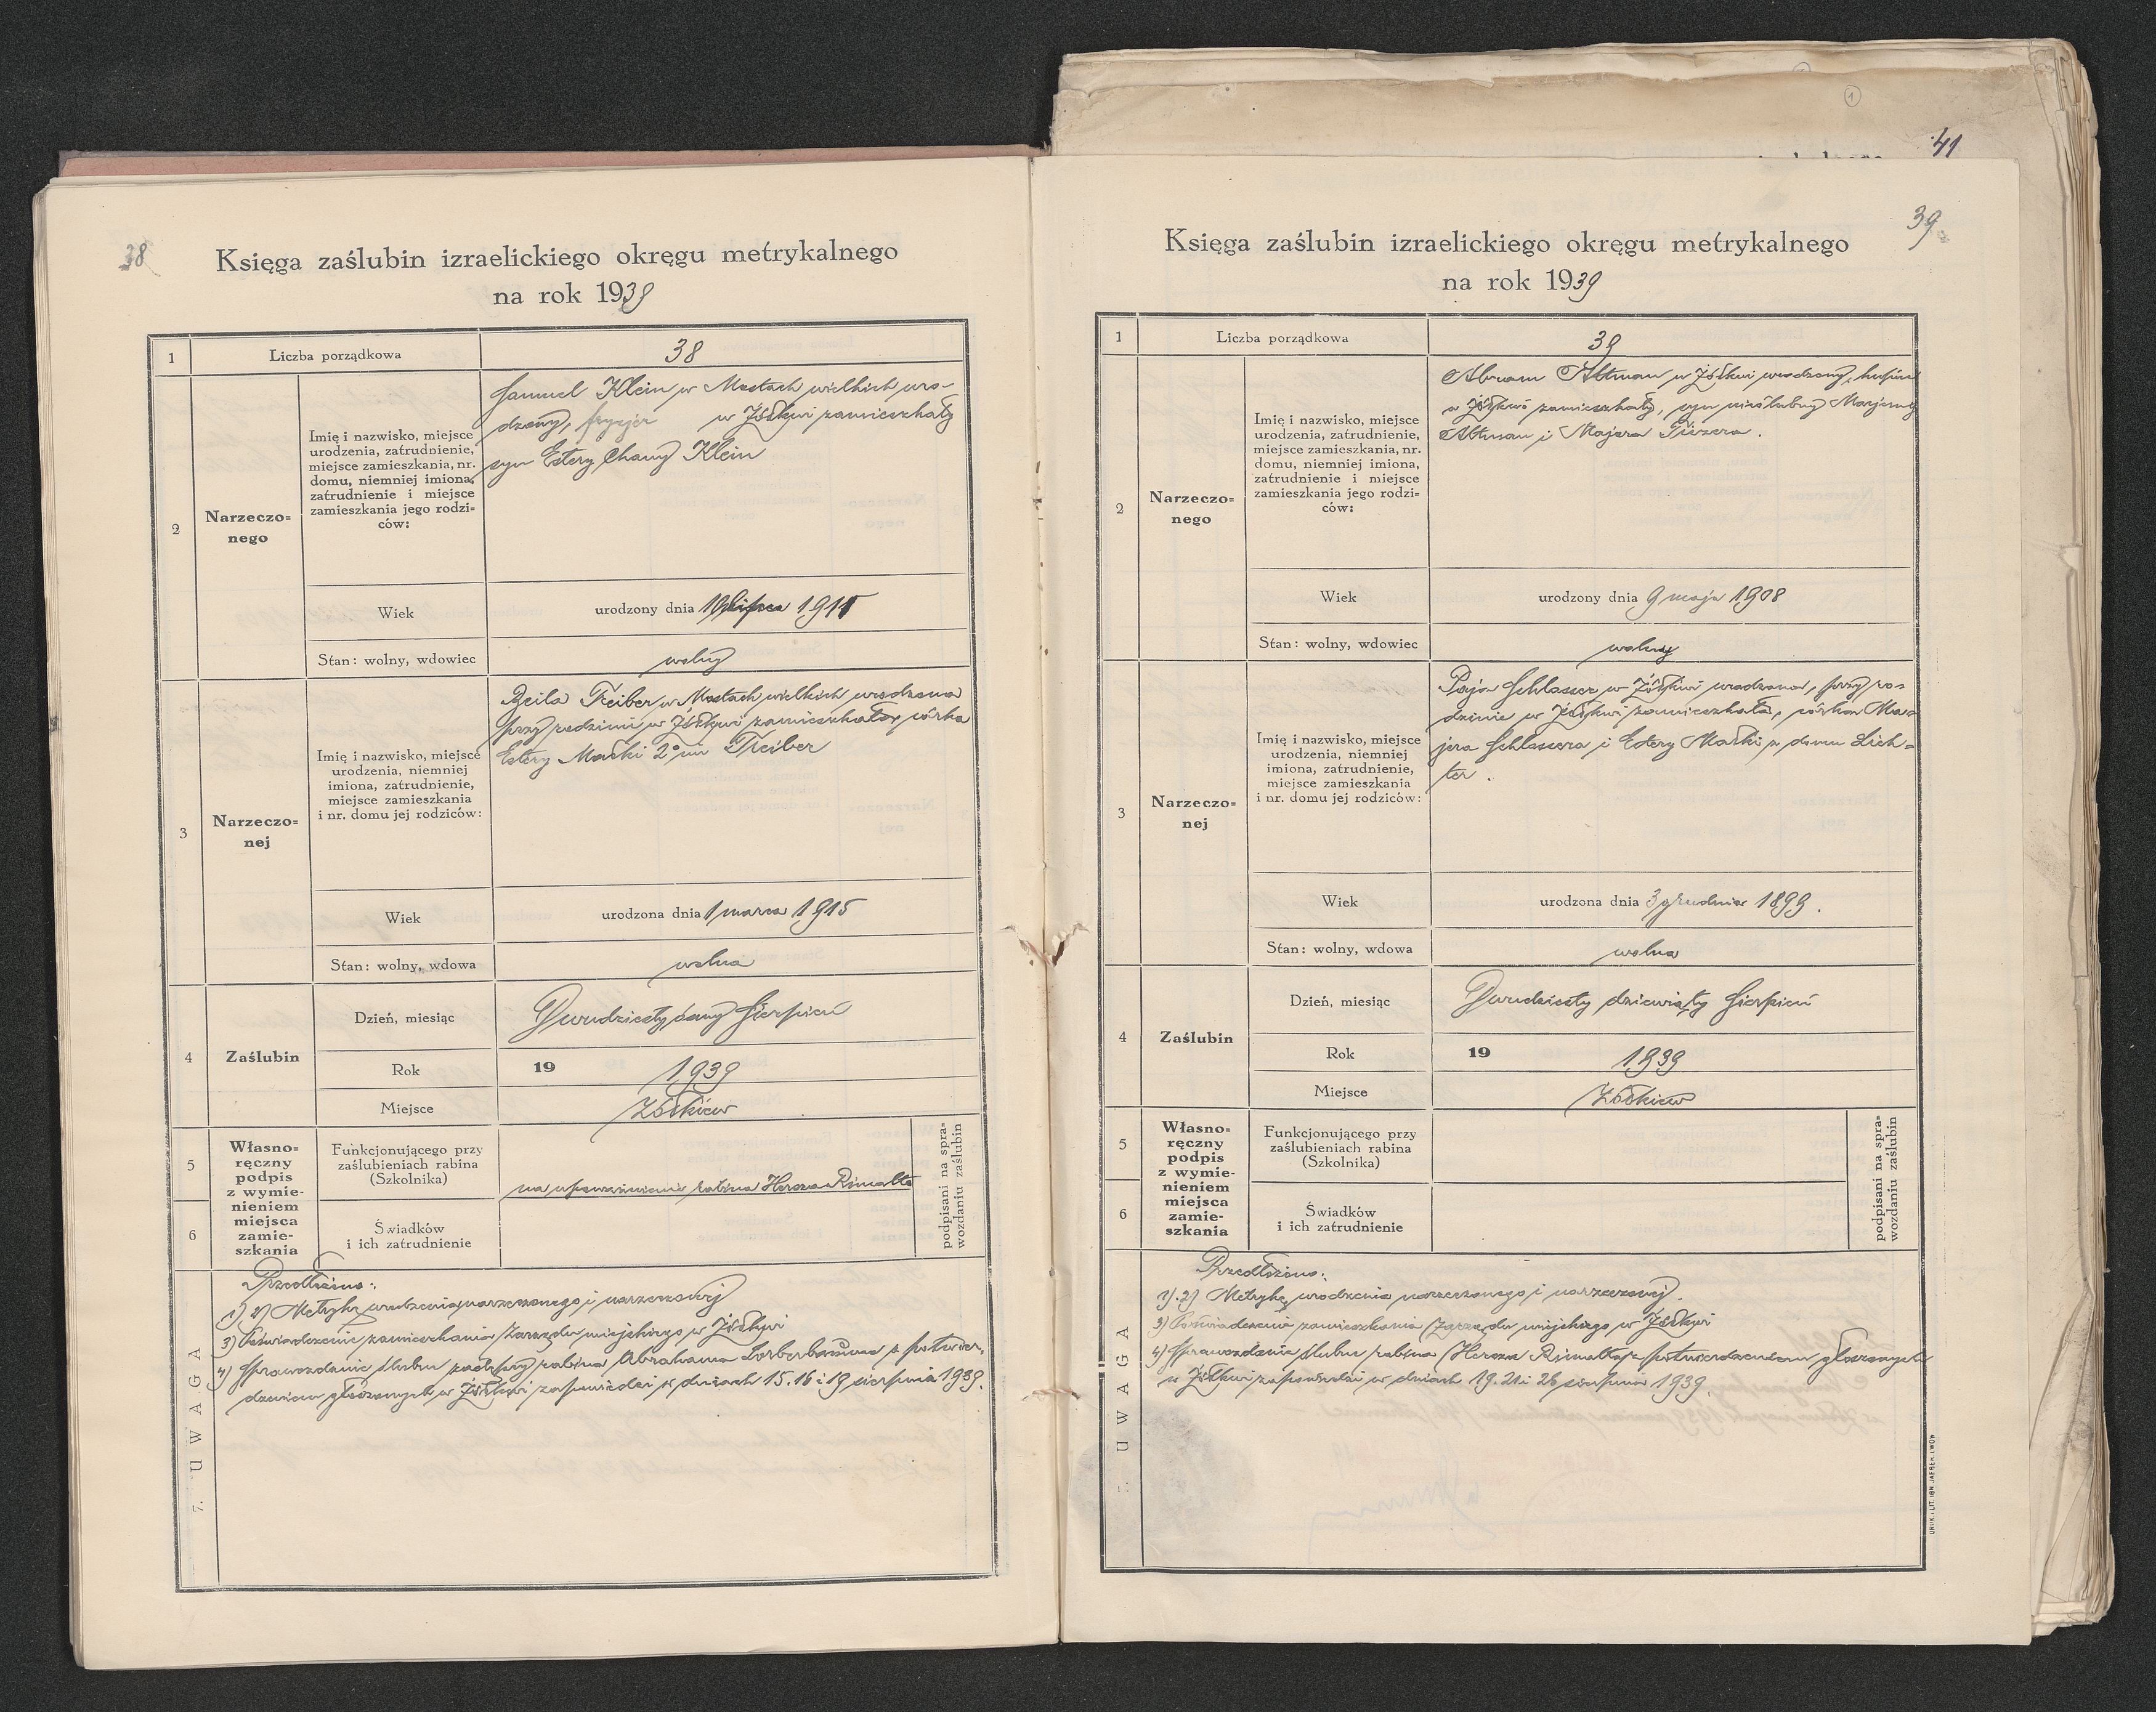 41
38
Księga zaślubin izraelickiego okręgu metrykalnego
na rok 1939
1
Liczba porządkowa
38
2
Narzeczo=
nego
Imię i nazwisko, miejsce
urodzenia, zatrudnienie,
miejsce zamieszkania, nr.
domu, niemniej imiona,
zatrudnienie i miejsce
zamieszkania jego rodzi=
ców:
Samuel Klein w Mostach wielkich uro-
dzony, fryzjer w Żółkwi zamieszkały
syn Estery Chany Klein
Wiek
urodzony dnia 19 lipca 1911
Stan: wolny, wdowiec
wolny
3
Narzeczo=
nej
Imię i nazwisko, miejsce
urodzenia, niemniej
imiona, zatrudnienie,
miejsce zamieszkania
i nr. domu jej rodziców:
Beila Treiber w Mostach wielkich urodzona
przy rodzinie w Żółkwi zamieszkała, córka
Estery Małki 2ᵒ im Treiber
Wiek
urodzona dnia 1 marca 1915
Stan: wolny, wdowa
wolna
4
Zaślubin
Dzień, miesiąc
Dwudziesty ósmy Sierpień
Rok
19 1939
Miejsce
Żółkiew
5
6
Własno=
ręczny
podpis
z wymie=
nieniem
miejsca
zamie=
szkania
Funkcjonującego przy
zaślubieniach rabina
(Szkolnika)
na upoważnienie rabina Hersza Rimalta
Świadków
i ich zatrudnienie
podpisani na spra=
wozdaniu zaślubin
7. UWAGA
Przedłożono:
1) 2) Metrykę urodzenia narzeczonego i narzeczonej
3) Poświadczenie zamieszkania Zarządu miejskiego w Żółkwi
4) Sprawozdanie ślubu zastępcy rabina Abrahama Sorberbauma z potwier-
dzeniem głoszonych w Żółkwi zapowiedzi w dniach 15. 16 i 19 sierpnia 1939.
39
Księga zaślubin izraelickiego okręgu metrykalnego
na rok 1939
1
Liczba porządkowa
39
2
Narzeczo=
nego
Imię i nazwisko, miejsce
urodzenia, zatrudnienie,
miejsce zamieszkania, nr.
domu, niemniej imiona,
zatrudnienie i miejsce
zamieszkania jego rodzi=
ców:
Abram Altman w Żółkwi urodzony,
w Żółkwi zamieszkały, syn nieślubny Marjemy
Altman i Majera
Wiek
urodzony dnia 9 maja 1908
Stan: wolny, wdowiec
wolny
3
Narzeczo=
nej
Imię i nazwisko, miejsce
urodzenia, niemniej
imiona, zatrudnienie,
miejsce zamieszkania
i nr. domu jej rodziców:
Paja Schlosser w Żółkwi urodzona, przy ro-
dzinie w Żółkwi zamieszkała, córka Ma=
jera Schlossera i Estery Małki z domu Lich=
ter.
Wiek
urodzona dnia 3 grudnia 1899.
Stan: wolny, wdowa
wolna
4
Zaślubin
Dzień, miesiąc
Dwudziesty dziewiąty Sierpień
Rok
19 1939
Miejsce
Żółkiew
5
6
Własno=
ręczny
podpis
z wymie=
nieniem
miejsca
zamie=
szkania
Funkcjonującego przy
zaślubieniach rabina
(Szkolnika)
Świadków
i ich zatrudnienie
podpisani na spra=
wozdaniu zaślubin
7. UWAGA
Przedłożono:
1). 2) Metrykę urodzenia narzeczonego i narzeczonej.
3) Poświadczenia zamieszkania Zarządu miejskiego w Żółkwi
4) Sprawozdania ślubu rabina Hersza Rimalta z potwierdzeniem głoszonych
w Żółkwi zapowiedzi w dniach 19. 21 i 26 sierpnia 1939.
DRUK. I LIT. IGN. JAEGER, LWÓW